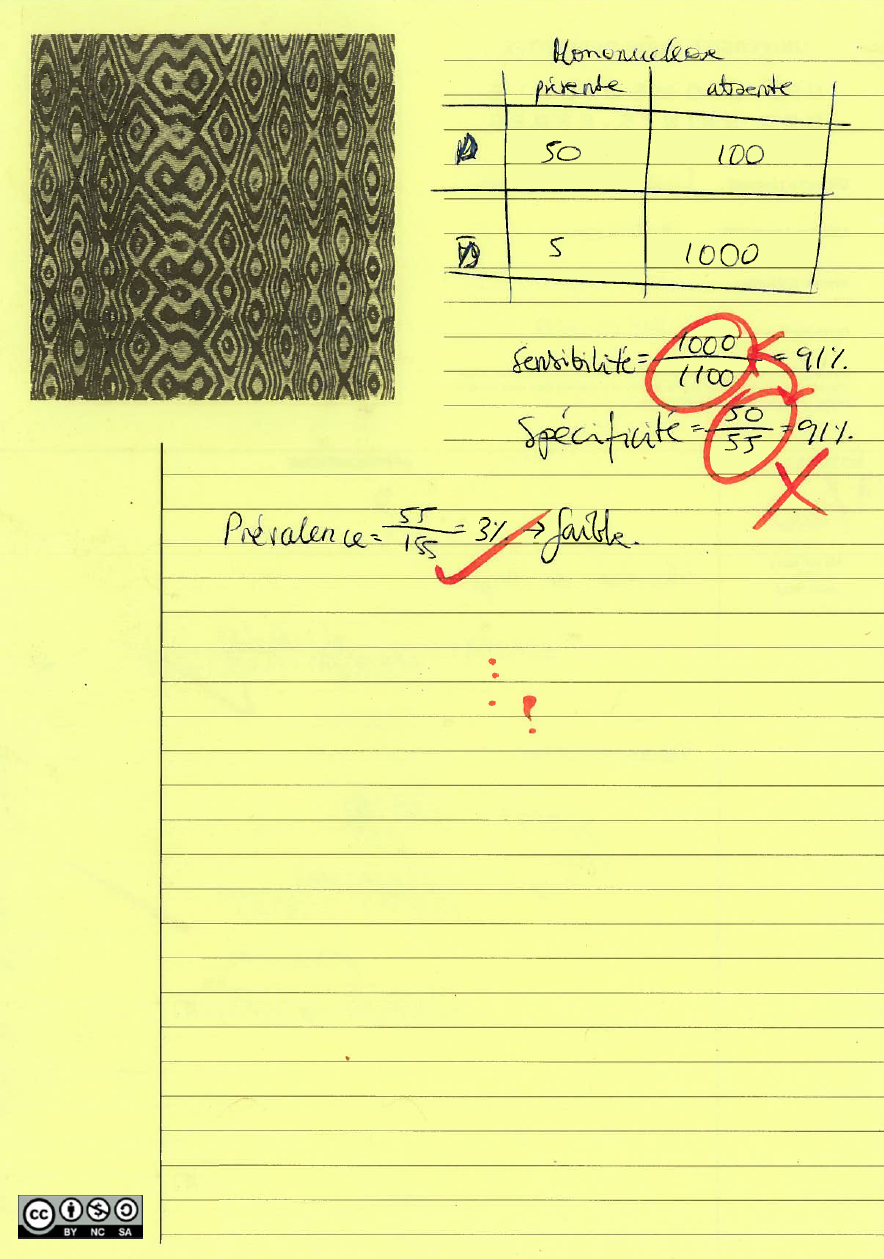 Mononucléose
présente absente
D 50 100
D̅ 5 1000
Sensibilité = 1000/1100 = 91%.
Spécificité = 50/55 = 91%.
Prévalence = 55/155 = 3% → faible.
⋮ !
cc BY NC SA